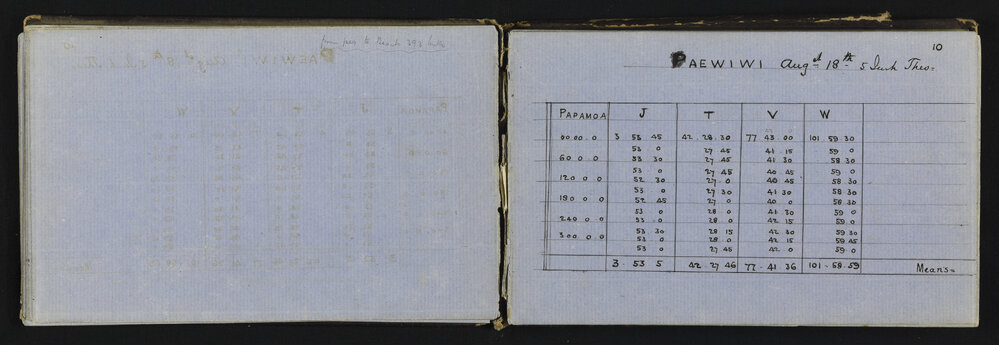 10
PAEWIWI Augst 18th 5 Inch Theo=
PAPAMOA J T V W
00.00.0 3 53 45 42.28.30 77 43.00 101.59.30
53 0 27 45 41.15 59 0
60 0 0 53 30 27 45 41 30 58 30
53 0 27 45 40 45 59 0
120 0 0 52 30 27 0 40 45 58 30
53 0 27 30 41 30 58 30
180 0 0 52 45 27 0 40 0 58 30
53 0 28 0 41 30 59 0
240 0 0 53 0 28 0 42 15 59 0
53 30 28 15 42 30 59 30
300 0 0 53 0 28 0 42 15 59 45
53 0 27 45 42 0 59 0
3.53 5 42.27 46 77.41 36 101.58.59 Means=